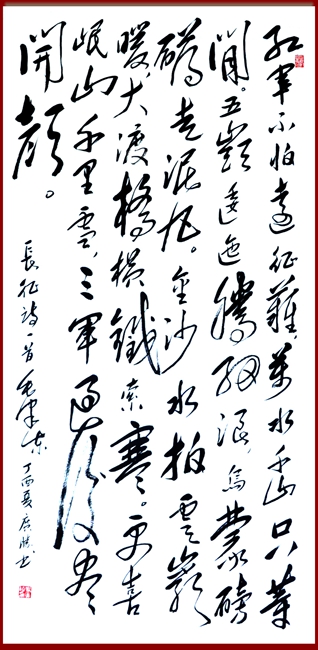 紅軍不怕遠征難,萬水千山只等
閒。五嶺逶迤騰細浪,烏蒙磅
礴走泥丸。金沙水拍雲巖
暖,大渡橋橫鐵索寒。更喜
岷山千里雪,三軍過後盡
開顏。
長征詩一首 毛澤東 丁酉夏